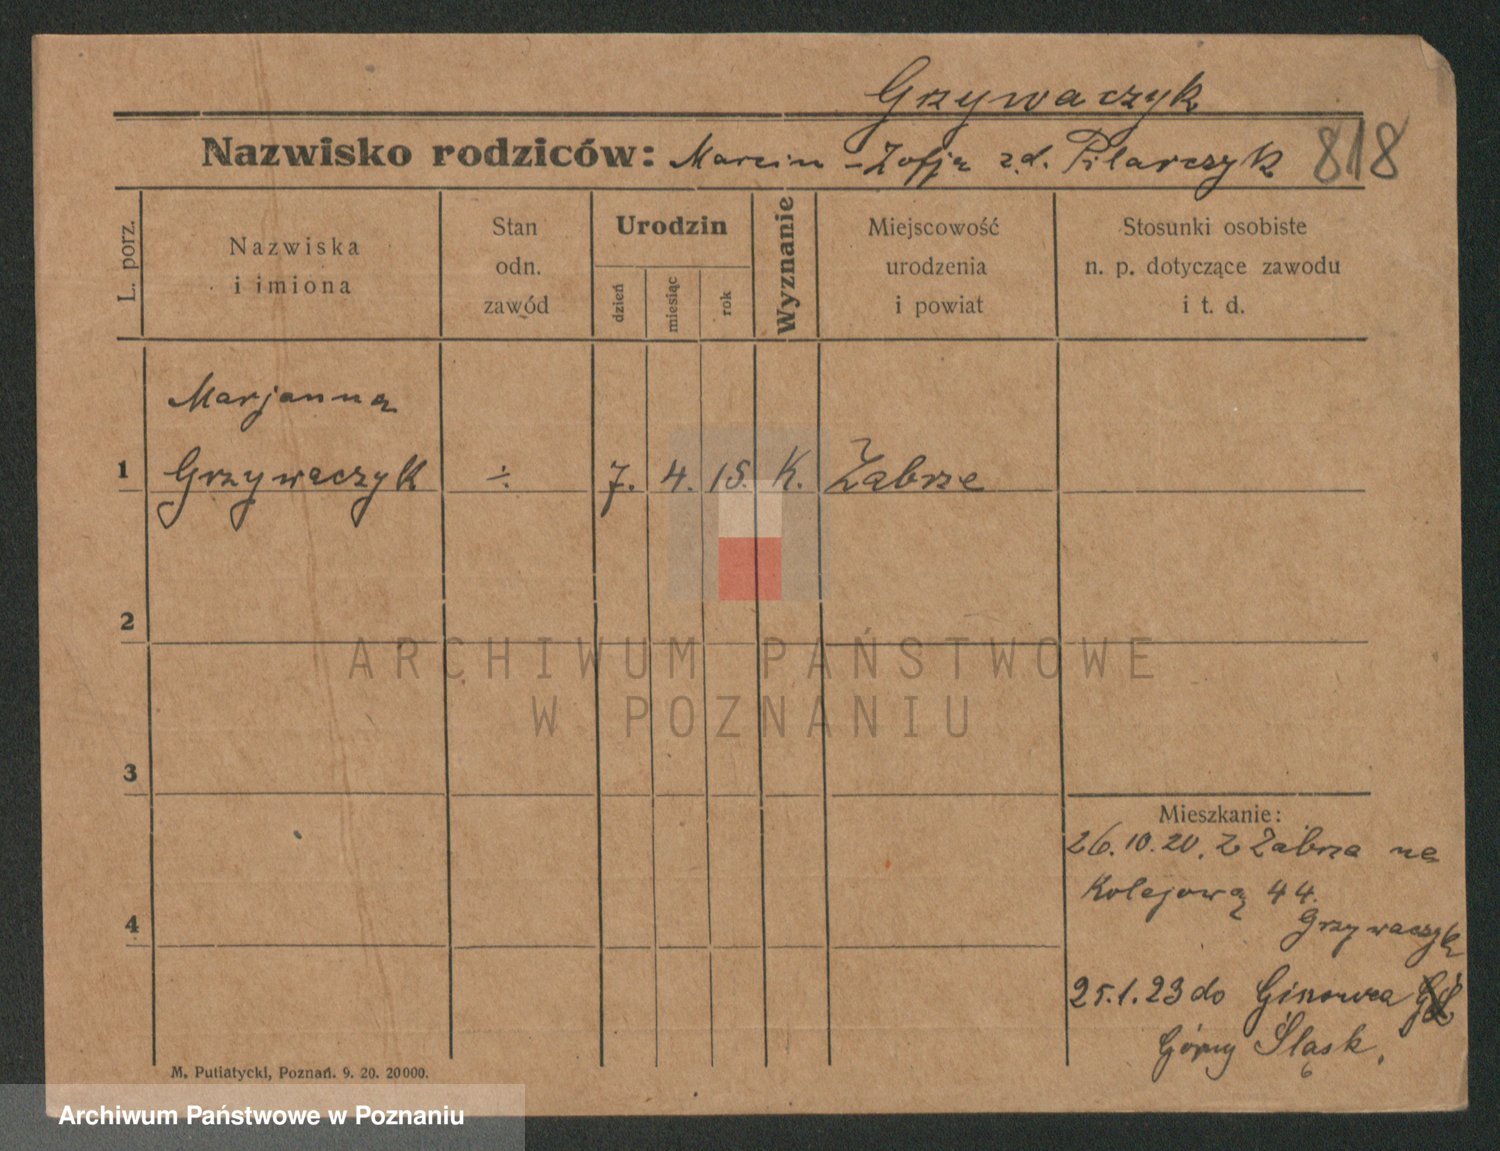 Grzywaczyk
Nazwisko rodziców: Marcin - Zofja zd. Pilarczyk 818
L. porz.
Nazwiska
i imiona
Stan
odn.
zawód
Urodzin
dzień
miesiąc
rok
Wyznanie
Miejscowość
urodzenia
i powiat
Stosunki osobiste
n. p. dotyczące zawodu
i t. d.
Marjanna
1 Grzywaczyk ÷ 7. 4. 15. K. Zabrze
2
3
4
Mieszkanie:
26.10.20. z Zabrza na
Kolejową 44.
Grzywaczyk
25.1.23 do
Górny Śląsk.
M. Putiatycki, Poznań. 9. 20. 20000.
ARCHIWUM PAŃSTWOWE
W POZNANIU
Archiwum Państwowe w Poznaniu